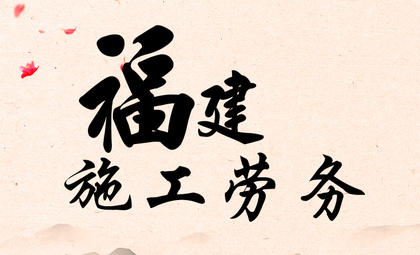 福建
施工劳务